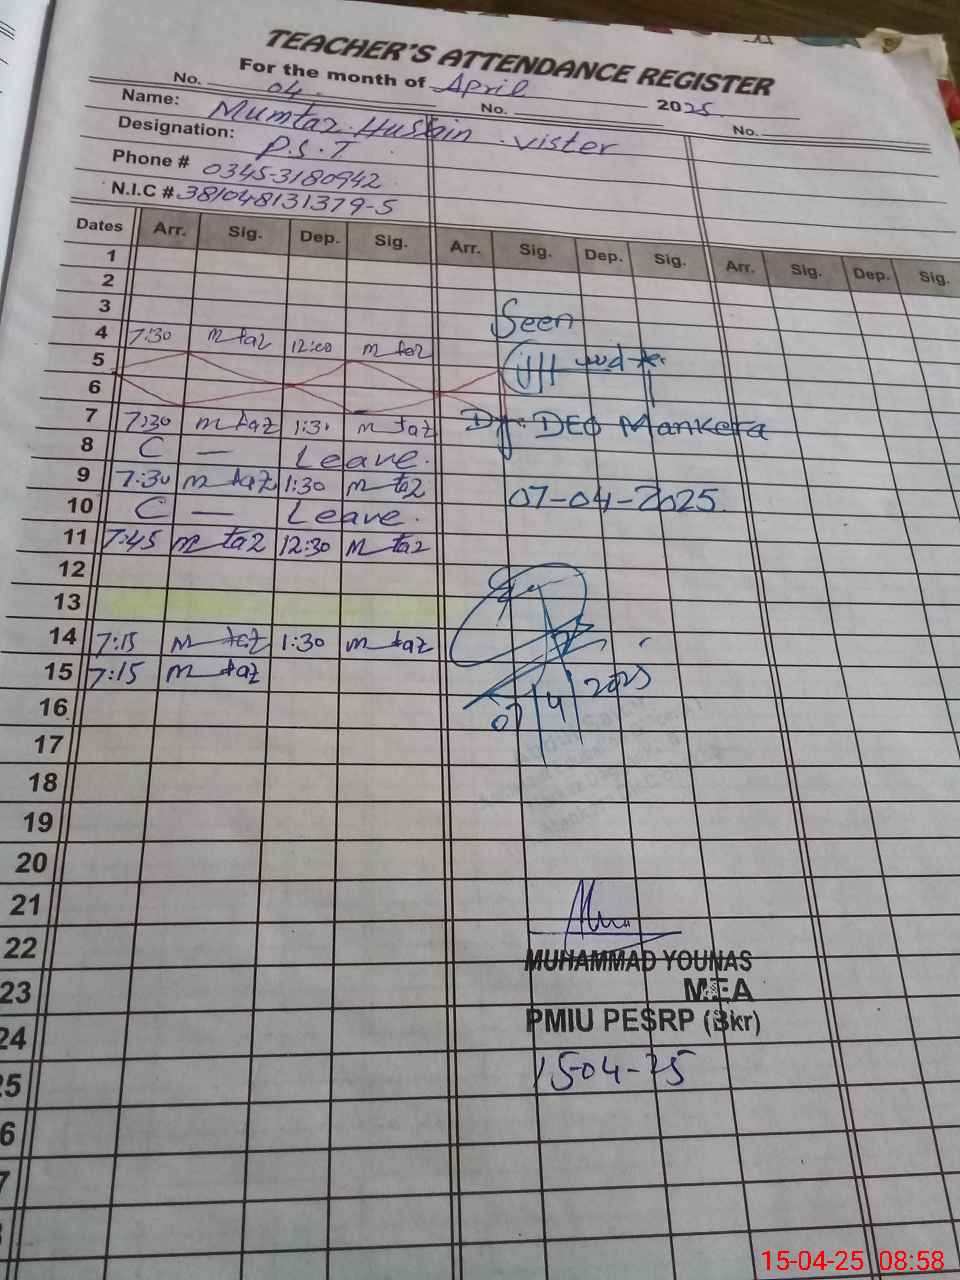 TEACHER'S ATTENDANCE REGISTER
For the month of April 2025
No. 04. No. No.
Name: Mumtaz Hussain . vister
Designation: P.S.T
Phone # 0345-3180942
N.I.C # 381048131379-5
Dates Arr. Sig. Dep. Sig. Arr. Sig. Dep. Sig. Arr. Sig. Dep. Sig.
1
2
3 Seen
4 7:30 m taz 12:00 m taz
5
6
7 7:30 m taz 1:31 m taz Dy. DEO Mankera
8 C — Leave.
9 7:30 m taz 1:30 m taz 07-04-2025
10 C — Leave.
11 7:45 m taz 12:30 m taz
12
13
14 7:15 m taz 1:30 m taz
15 7:15 m taz
07/4/2025
16
17
18
19
20
21
22 MUHAMMAD YOUNAS
23 MEA
24 PMIU PESRP (Bkr)
25 15-04-25
6
7
15-04-25 08:58